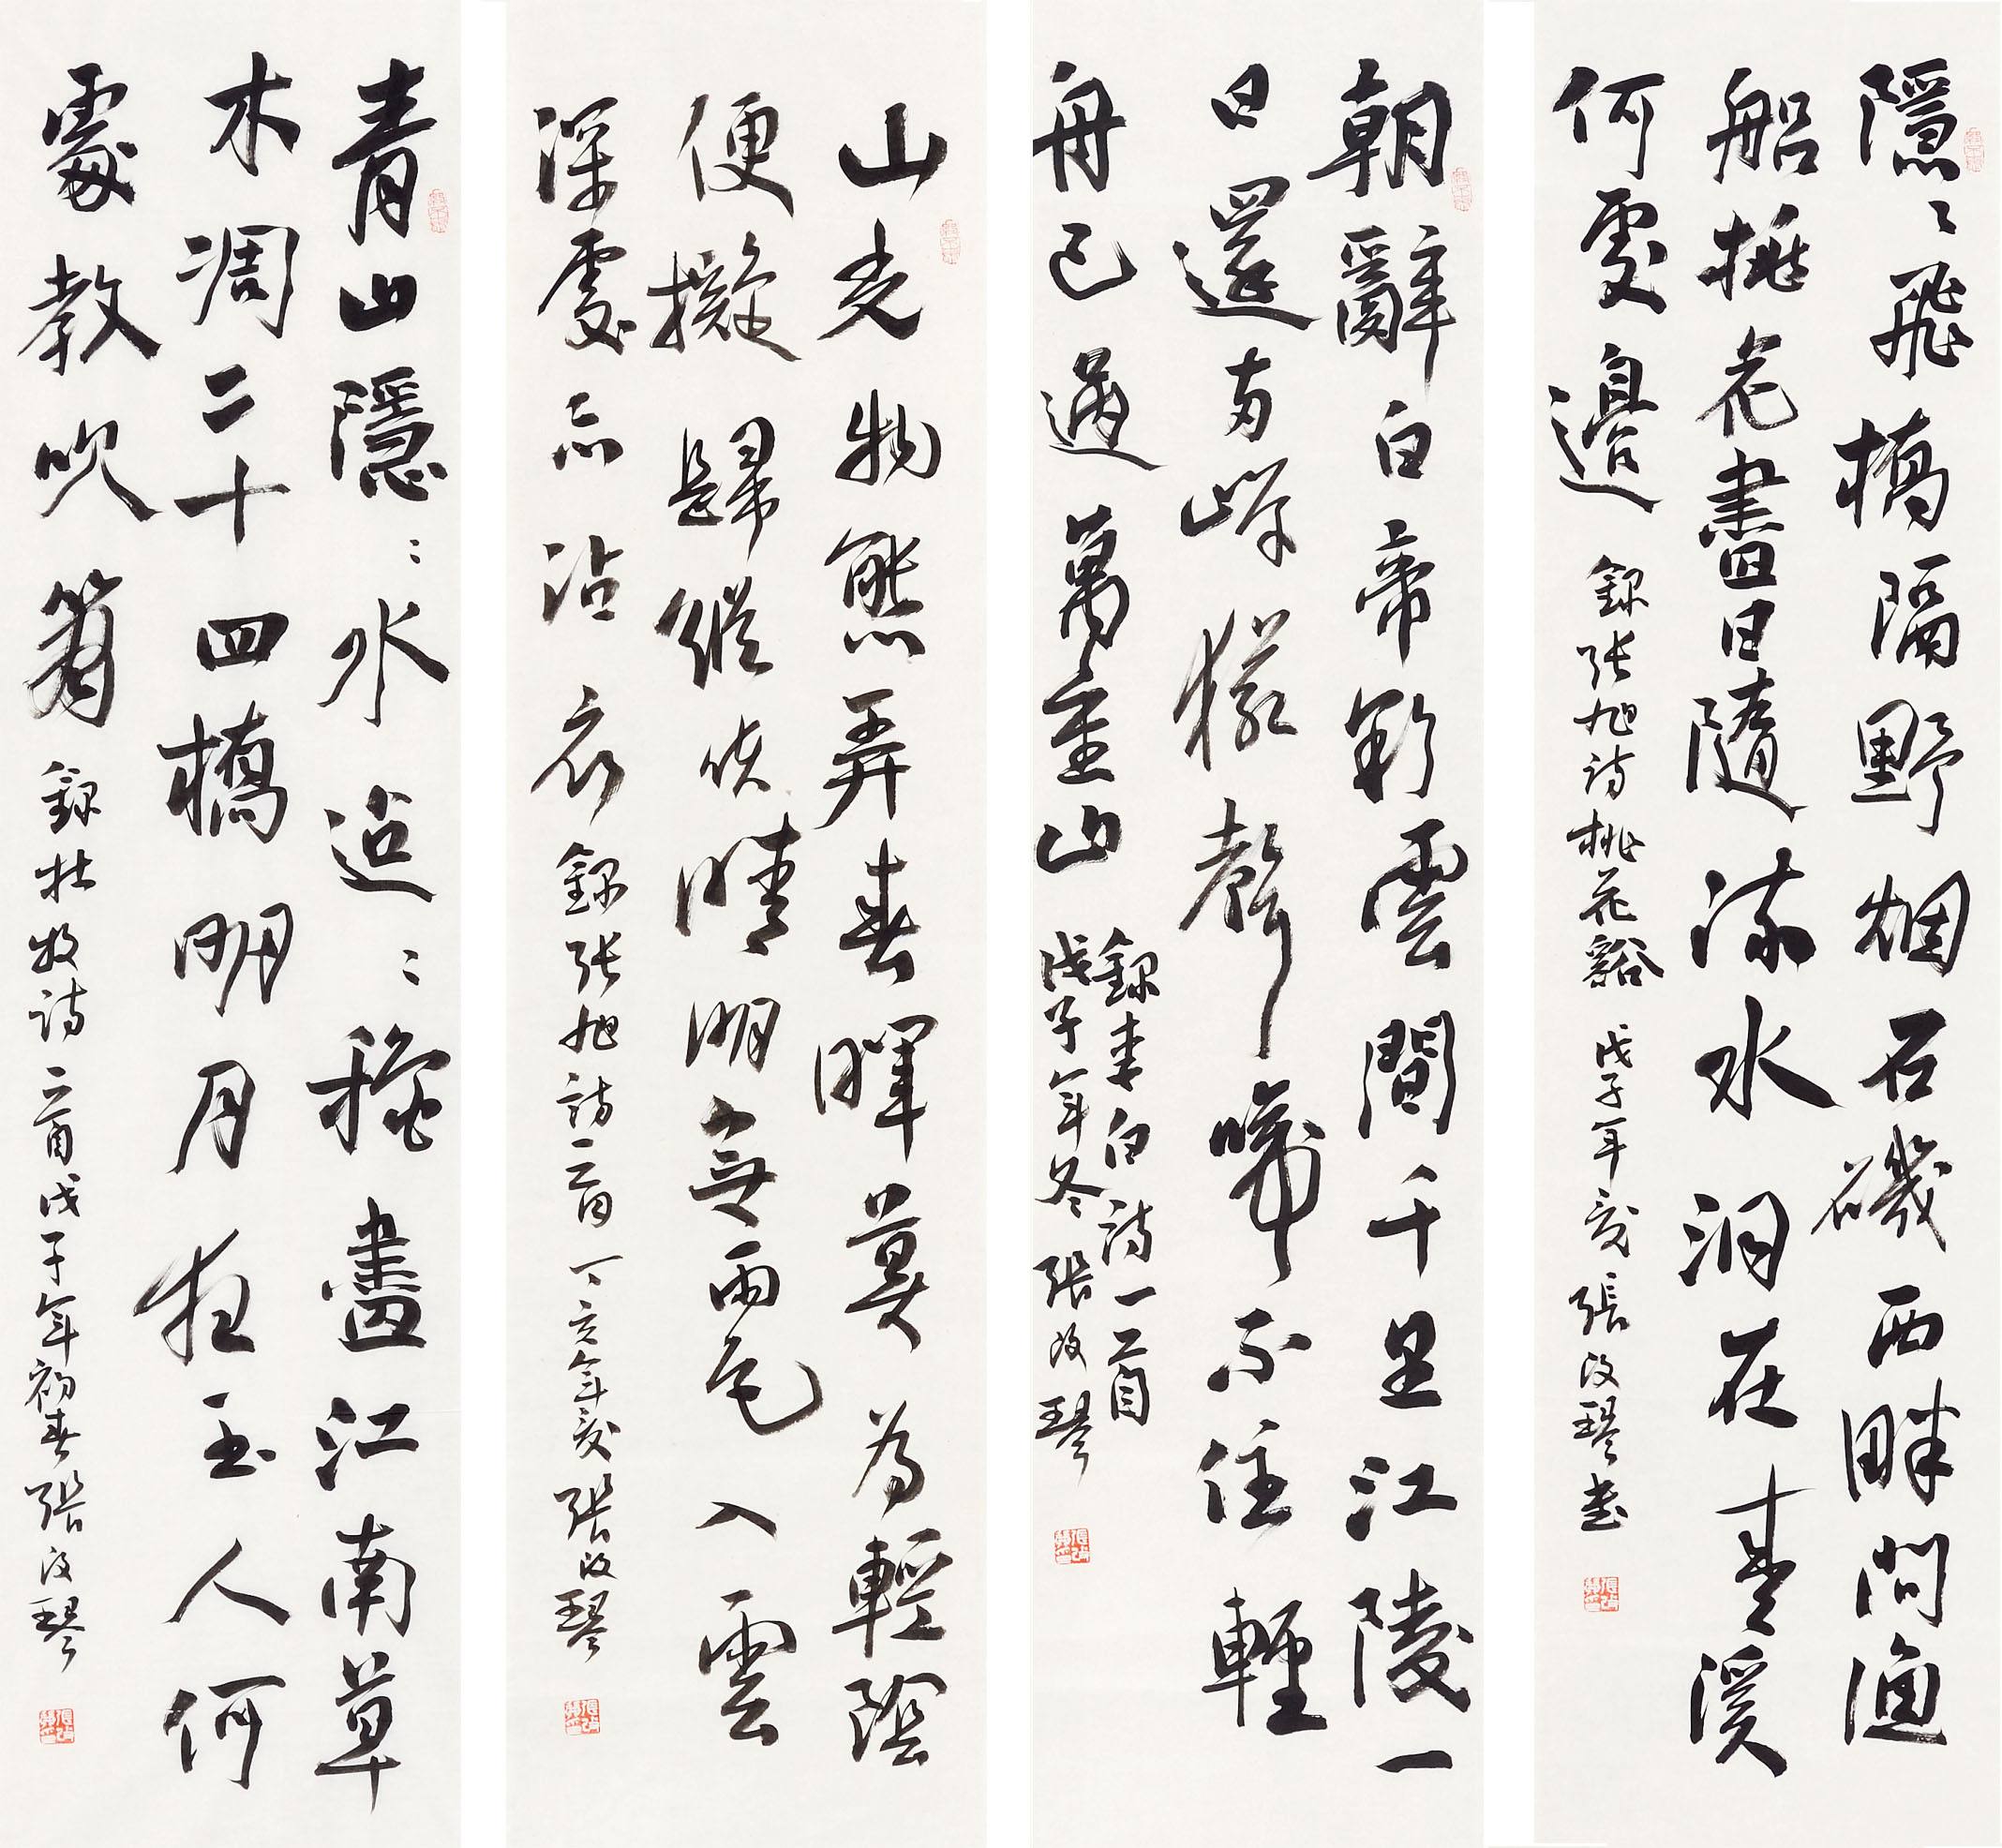 隱〻飛橋隔野烟石磯西畔問漁
船桃花盡日隨流水洞在青溪
何處邊 錄張旭詩桃花谿 戊子年夏 張改琴書
朝辭白帝彩雲間千里江陵一
日還兩岸猿聲啼不住輕
舟已過萬重山
錄李白詩一首
戊子年冬 張改琴
山光物態弄春暉莫為輕陰
便擬歸縱使晴明無雨色入雲
深處亦沾衣 錄張旭詩一首 丁亥年夏 張改琴
青山隱〻水迢〻穐盡江南草
木凋二十四橋明月夜玉人何
處教吹簫 錄杜牧詩一首戊子年初春張改琴